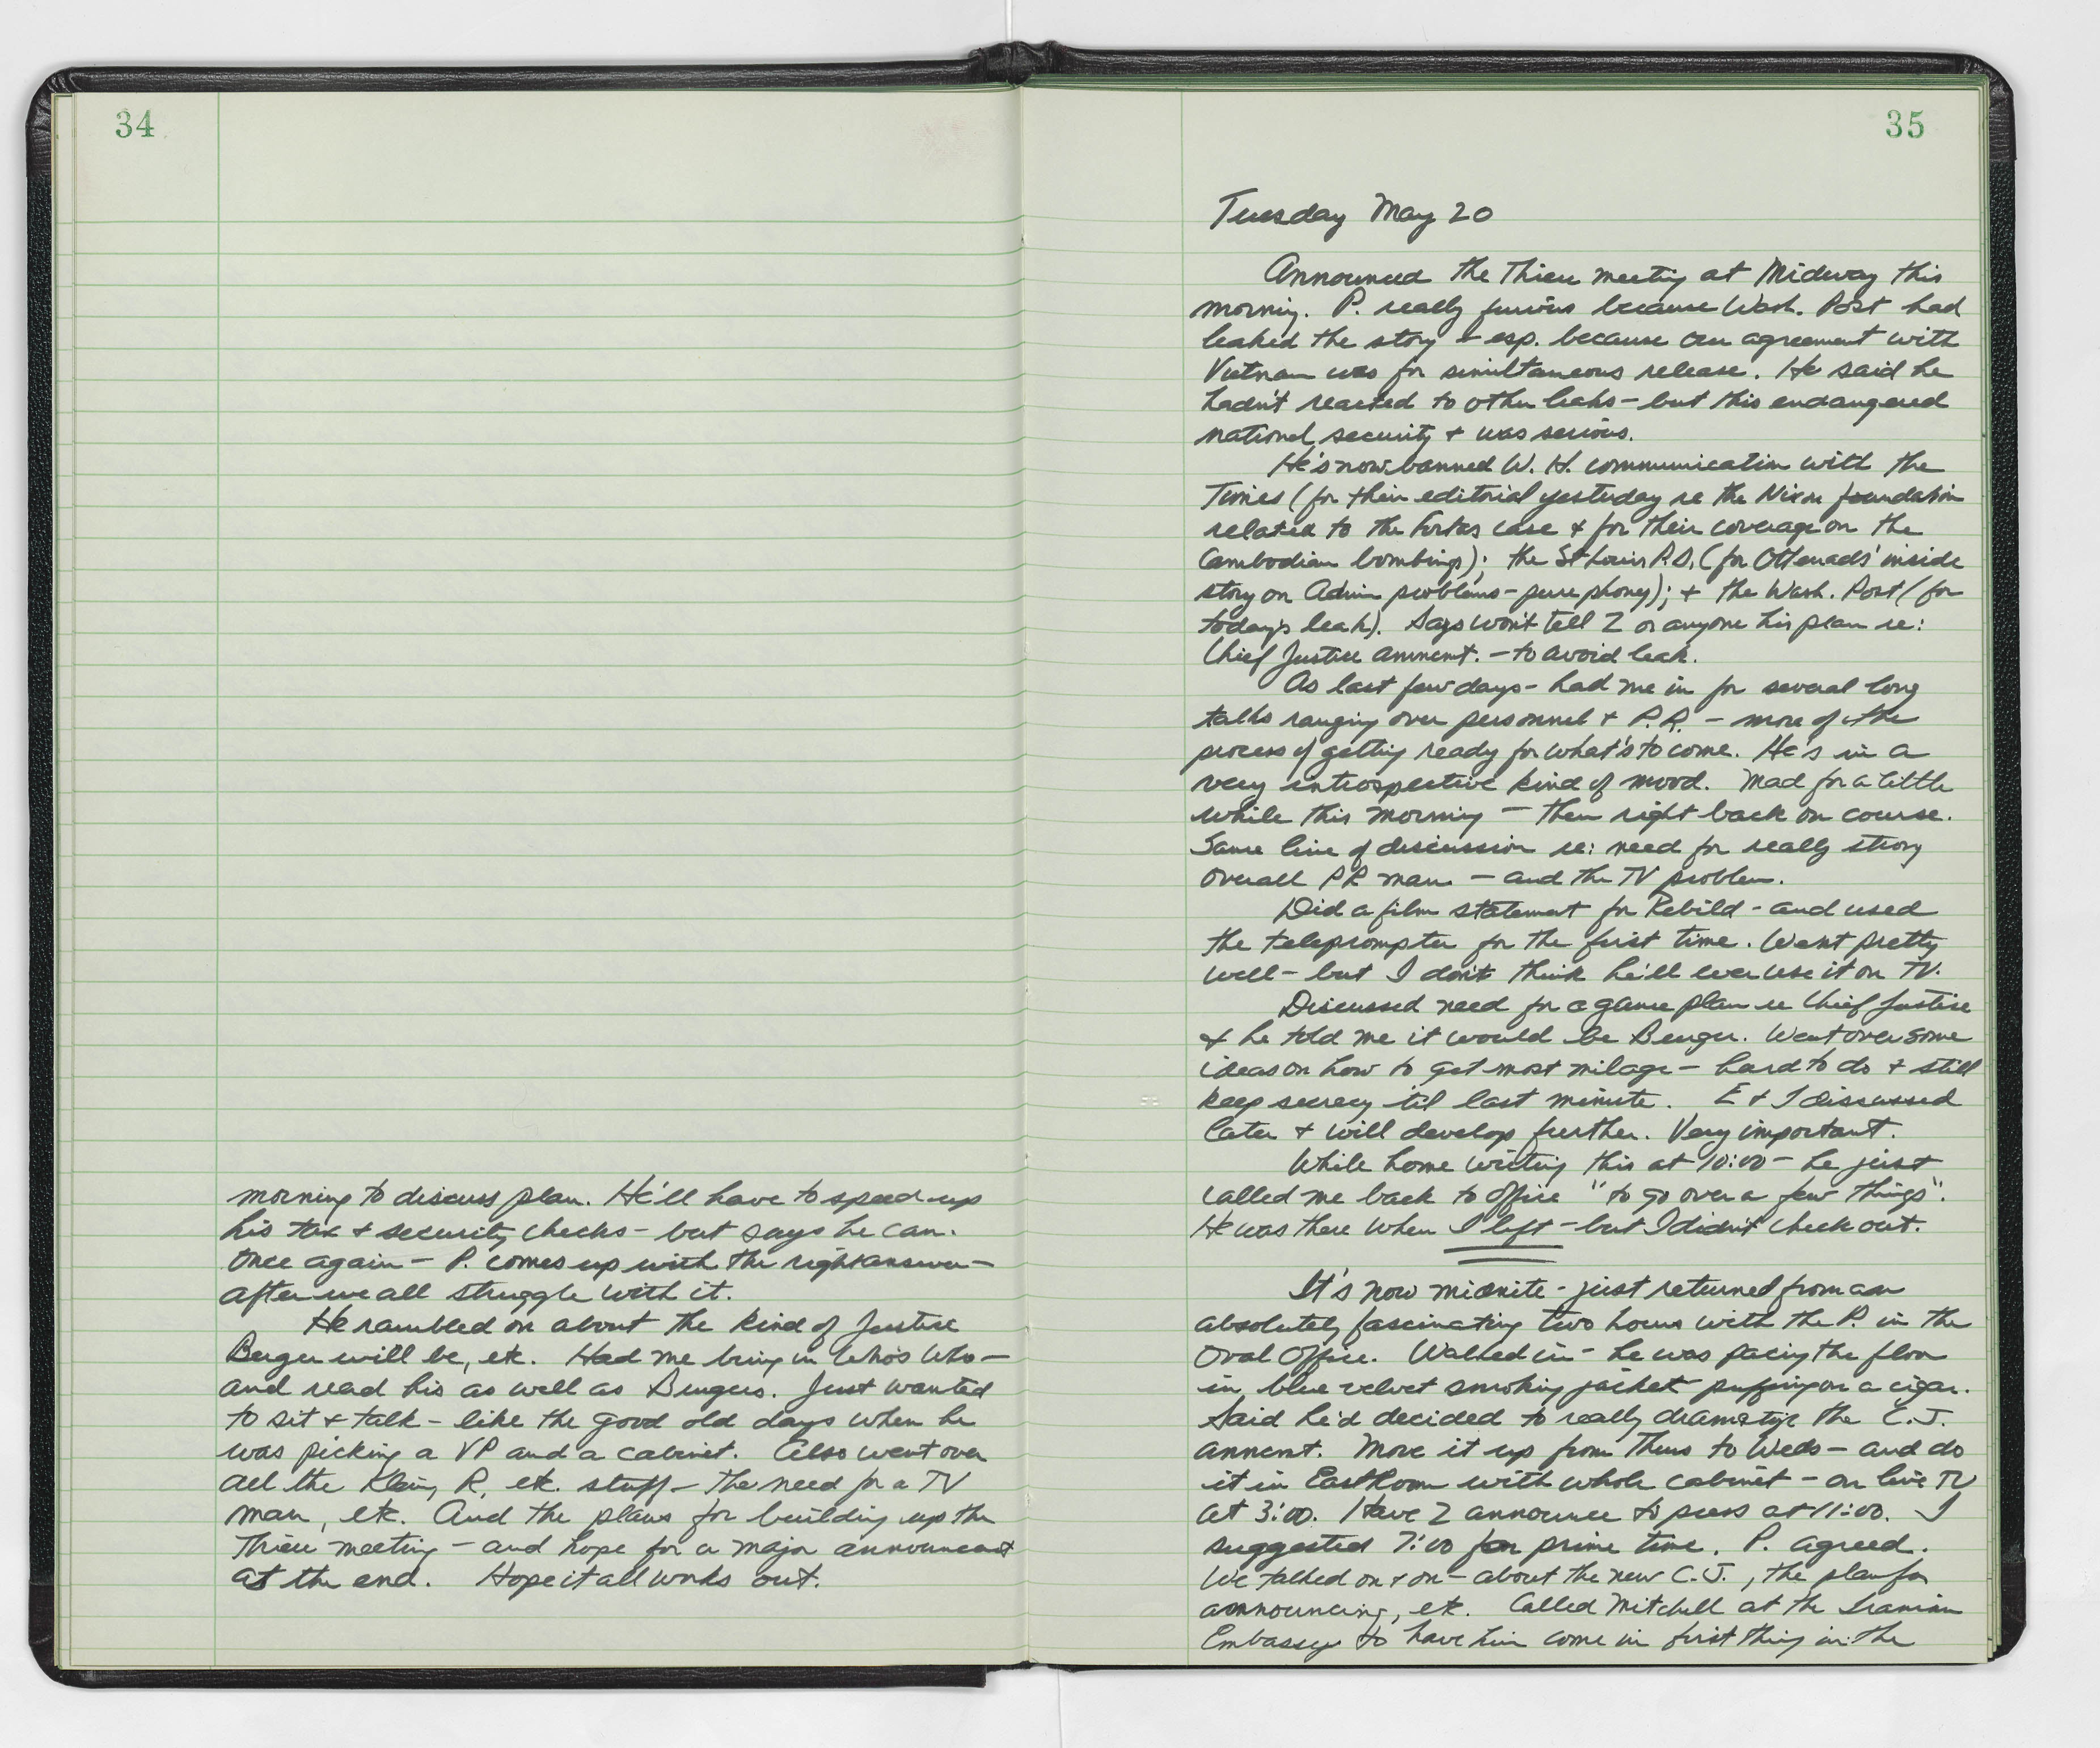 34
morning to discuss plan. He'll have to speed-up
his tax + security checks - but says he can.
Once again - P. comes up with the right answer -
after we all struggle with it.
He rambled on about the kind of Justice
Berger will be, etc. Had me bring in Who's Who -
and read his as well as Burgers. Just wanted
to sit + talk - like the good old days when he
was picking a VP and a cabinet. Also went over
all the Klein, R, etc. stuff - the need for a TV
man, etc. And the plans for building up the
Thieu meeting - and hope for a major announcemt
at the end. Hope it all works out.
35
Tuesday May 20
Announced the Thieu meeting at Midway this
morning. P. really furious because Wash. Post had
leaked the story + esp. because our agreement with
Vietnam was for simultaneous release. He said he
hadn't reacted to other leaks - but this endangered
national security + was serious.
He's now banned W. H. communication with the
Times (for their editorial yesterday re the Nixon foundation
related to the Fortas case + for their coverage on the
Cambodian bombings); the St Louis P.D. (for Ottenads' inside
story on Admin problems - pure phony); + the Wash. Post (for
today's leak). Says won't tell Z or anyone his plan re:
Chief Justice annmnt. - to avoid leak.
As last few days - had me in for several long
talks ranging over personnel + P.R. - more of the
process of getting ready for what's to come. He's in a
very introspective kind of mood. Mad for a little
while this morning - then right back on course.
Same line of discussion re: need for really strong
overall PR man - and the TV problem.
Did a film statement for Rebild - and used
the teleprompter for the first time. Went pretty
well - but I don't think he'll ever use it on TV.
Discussed need for a game plan re Chief Justice
+ he told me it would be Burger. Went over some
ideas on how to get most milage - hard to do + still
keep secrecy til last minute. E + I discussed
later + will develop further. Very important.
While home writing this at 10:00 - he just
called me back to office "to go over a few things".
He was there when I left - but I didn't check out.
It's now midnite - just returned from an
absolutely fascinating two hours with the P. in the
Oval Office. Walked in - he was pacing the floor
in blue velvet smoking jacket puffing on a cigar.
Said he'd decided to really dramatize the C.J.
annmnt. Move it up from Thurs to Weds - and do
it in East Room with whole cabinet - on live TV
at 3:00. Have Z announce to press at 11:00. I
suggested 7:00 for prime time. P. agreed.
We talked on + on - about the new C.J., the plan for
announcing, etc. Called Mitchell at the Iranian
Embassy to have him come in first thing in the